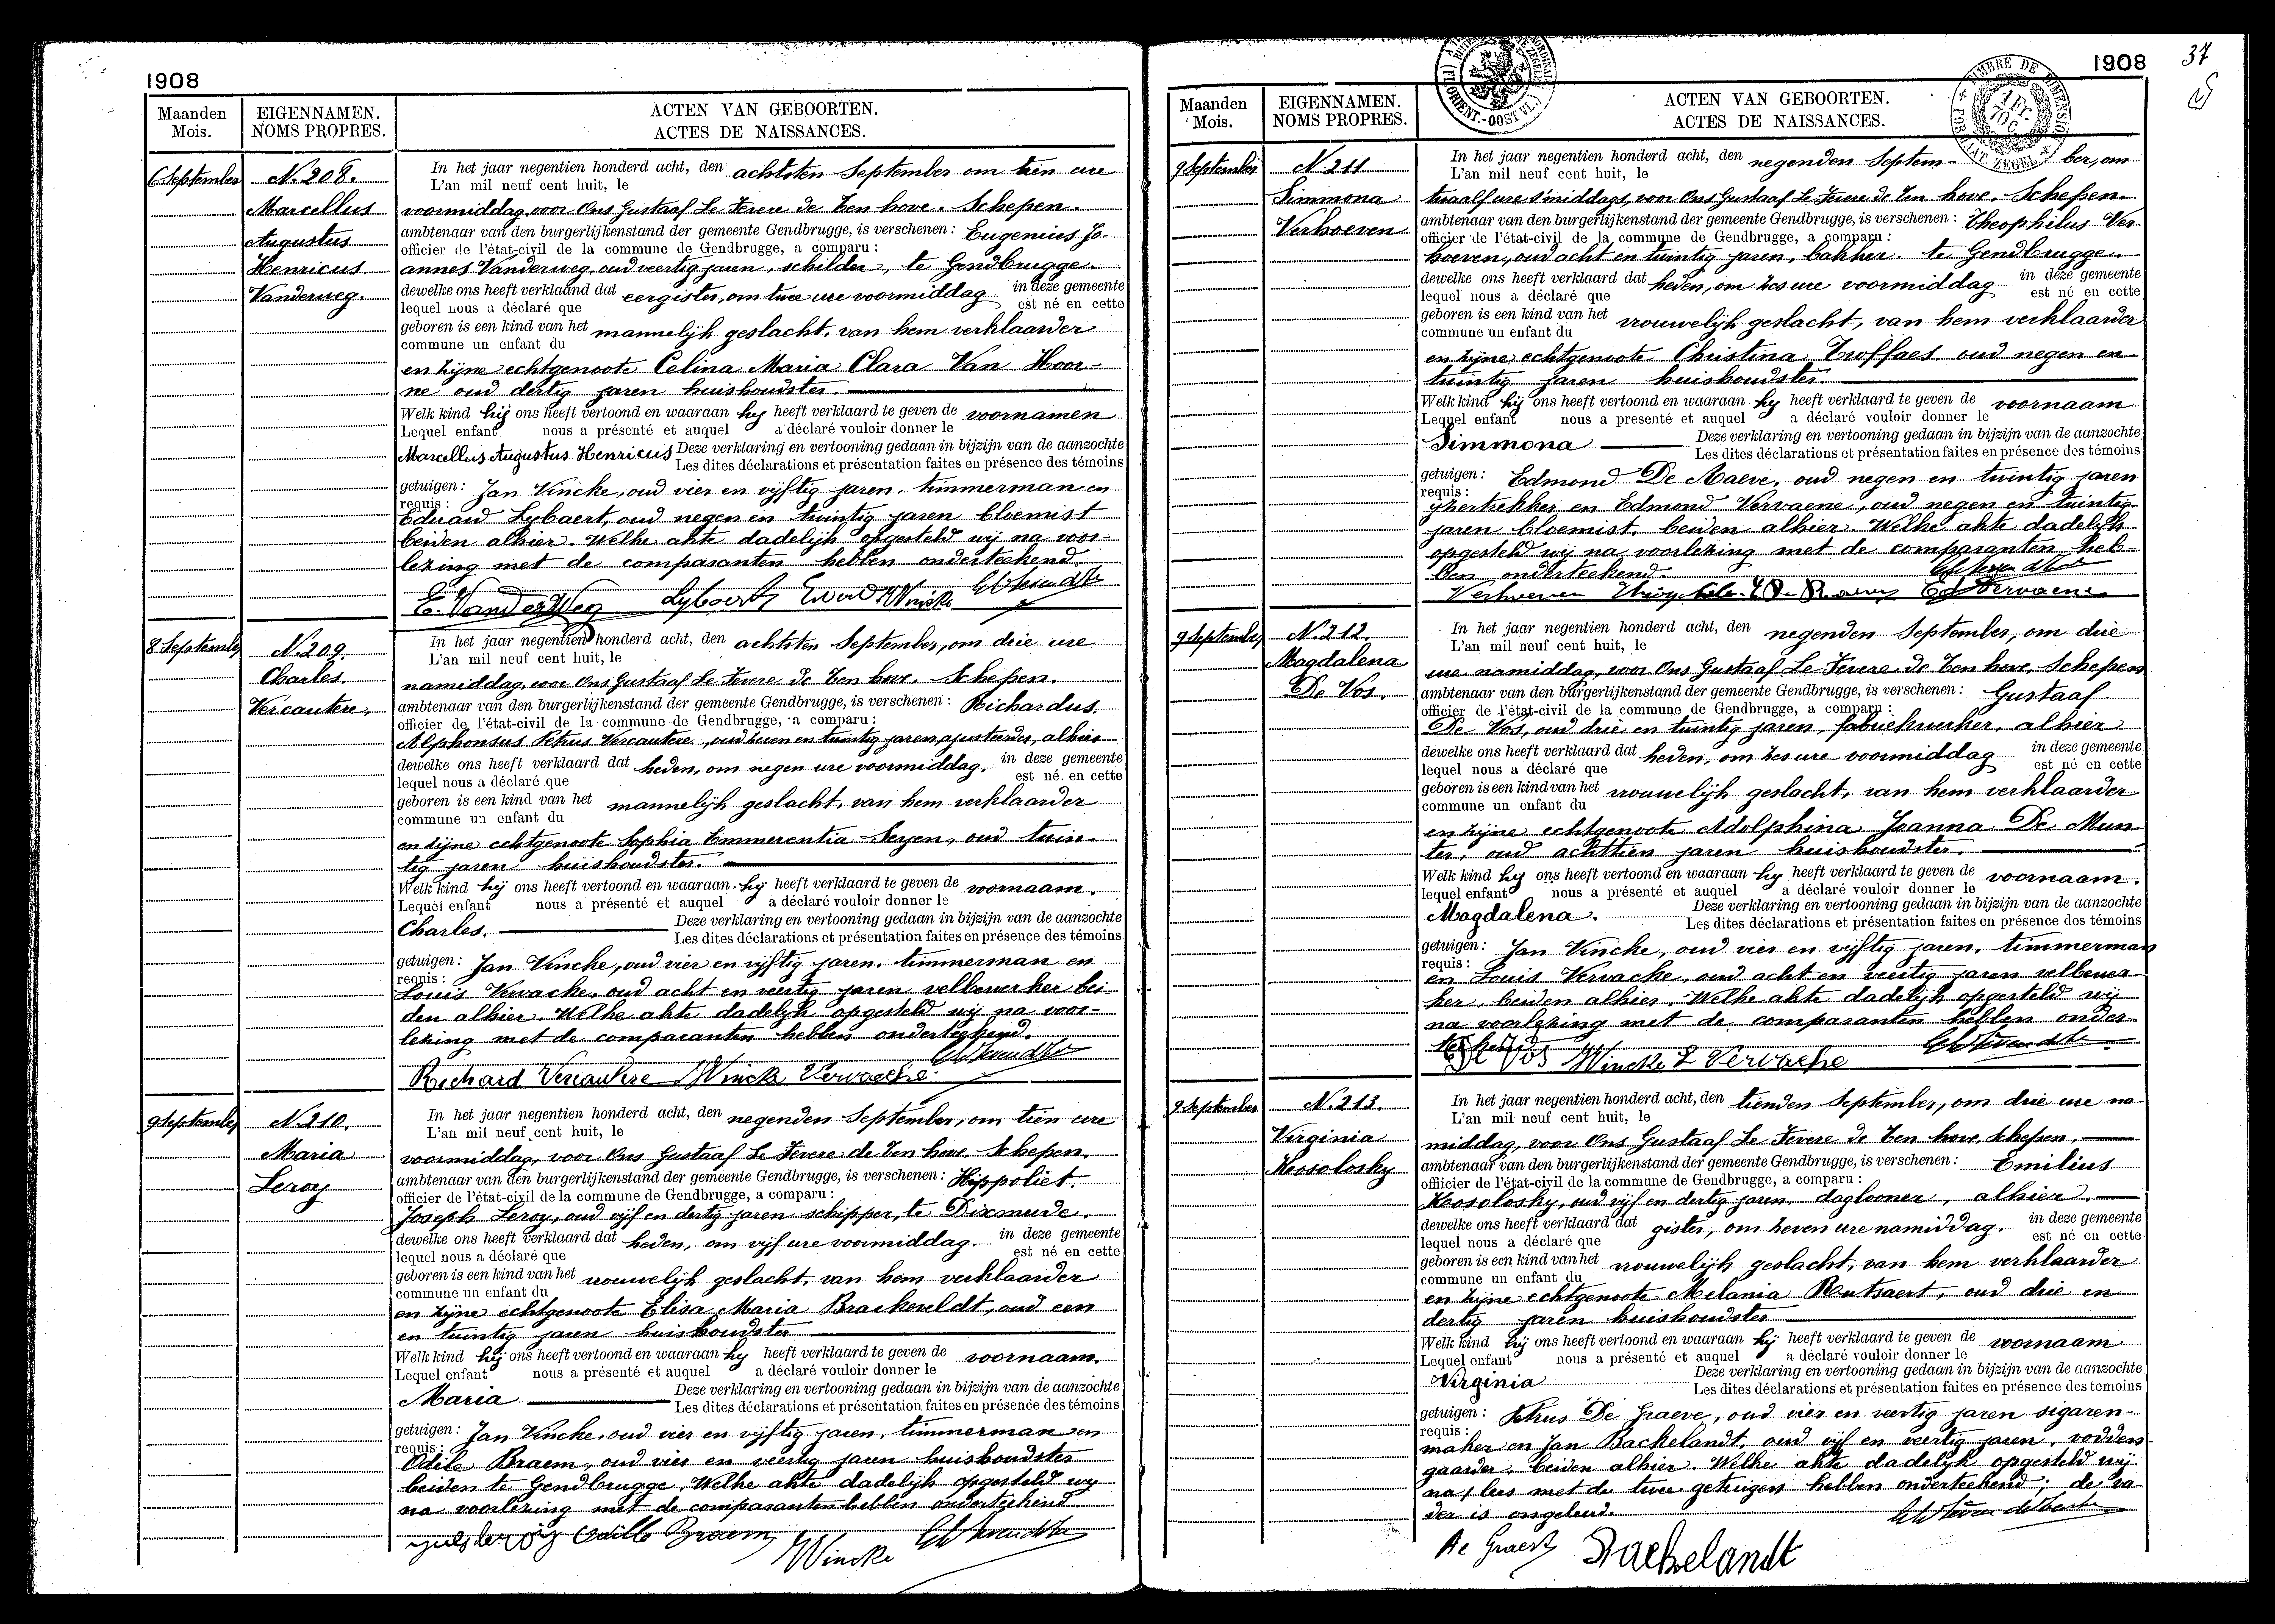 1908
Maanden Mois.
EIGENNAMEN. NOMS PROPRES.
ACTEN VAN GEBOORTEN.
ACTES DE NAISSANCES.
6 September
N. 208.
Marcellus
Augustus
Henricus
Vanderweg.
In het jaar negentien honderd acht, den achtsten September om tien ure
L'an mil neuf cent huit, le
voormiddag, voor Ons Gustaaf Le Fevere de Ten hove. Schepen.
ambtenaar van den burgerlijkenstand der gemeente Gendbrugge, is verschenen: Eugenius Jo-
officier de l'état-civil de la commune de Gendbrugge, a comparu:
annes Vanderweg, oud veertig jaren, schilder, te Gendbrugge.
dewelke ons heeft verklaand dat eergister, om twee ure voormiddag in deze gemeente
lequel nous a déclaré que est né en cette
geboren is een kind van het mannelijk geslacht, van hem verklaarder
commune un enfant du
en zijne echtgenoote Celina Maria Clara Van Hoor-
ne oud dertig jaren huishoudster.
Welk kind hij ons heeft vertoond en waaraan hy heeft verklaard te geven de voornamen
Lequel enfant nous a présenté et auquel a déclaré vouloir donner le
Marcellus Augustus Henricus Deze verklaring en vertooning gedaan in bijzijn van de aanzochte
Les dites déclarations et présentation faites en présence des témoins
getuigen: Jan Vincke, oud vier en vijftig jaren, timmerman en
requis:
Eduard Lybaert, oud negen en twintig jaren bloemist
beiden alhier. Welke akte dadelijk opgesteld wij na voor-
lezing met de comparanten hebben onderteekend.
E. VanderWeg Lybaert Eduard Wincke
8 September
N. 209.
Charles
Vercautere,
In het jaar negentien honderd acht, den achtsten September, om drie ure
L'an mil neuf cent huit, le
namiddag, voor Ons Gustaaf Le Fevere de Ten hove. Schepen.
ambtenaar van den burgerlijkenstand der gemeente Gendbrugge, is verschenen: Richardus
officier de l'état-civil de la commune de Gendbrugge, a comparu:
Alphonsus Petrus Vercautere, oud zeven en twintig jaren, ajusteerder, alhier
dewelke ons heeft verklaard dat heden, om negen ure voormiddag. in deze gemeente
lequel nous a déclaré que est né en cette
geboren is een kind van het mannelijk geslacht, van hem verklaarder
commune un enfant du
en zijne echtgenoote Sophia Emmerentia Seyen, oud twin-
tig jaren huishoudster.
Welk kind hij ons heeft vertoond en waaraan hij heeft verklaard te geven de voornaam.
Lequel enfant nous a présenté et auquel a déclaré vouloir donner le
Charles. Deze verklaring en vertooning gedaan in bijzijn van de aanzochte
Les dites déclarations et présentation faites en présence des témoins
getuigen: Jan Vincke, oud vier en vijftig jaren, timmerman en
requis:
Louis Vervacke, oud acht en veertig jaren velbewerker bei-
den alhier. Welke akte dadelijk opgesteld wij na voor-
lezing met de comparanten hebben onderteekend.
Richard Vercautere Winck Vervacke
9 September
N. 210.
Maria
Leroy
In het jaar negentien honderd acht, den negenden September, om tien ure
L'an mil neuf cent huit, le
voormiddag, voor Ons Gustaaf Le Fevere de Ten hove. Schepen.
ambtenaar van den burgerlijkenstand der gemeente Gendbrugge, is verschenen: Hippoliet
officier de l'état-civil de la commune de Gendbrugge, a comparu:
Joseph Leroy, oud vijf en dertig jaren schipper, te Dixmude.
dewelke ons heeft verklaard dat heden, om vijf ure voormiddag. in deze gemeente
lequel nous a déclaré que est né en cette
geboren is een kind van het vrouwelijk geslacht, van hem verklaarder
commune un enfant du
en zijne echtgenoote Elisa Maria Brackeveldt, oud een
en twintig jaren huishoudster
Welk kind hij ons heeft vertoond en waaraan hy heeft verklaard te geven de voornaam.
Lequel enfant nous a présenté et auquel a déclaré vouloir donner le
Maria Deze verklaring en vertooning gedaan in bijzijn van de aanzochte
Les dites déclarations et présentation faites en présence des témoins
getuigen: Jan Vincke, oud vier en vijftig jaren, timmerman en
requis:
Odile Braem, oud vier en veertig jaren huishoudster
beiden te Gendbrugge. Welke akte dadelijk opgesteld wy
na voorlezing met de comparanten hebben onderteekend
Braem Wincke
1908
37
TIMBRE DE DIMENSION
1 Fr.
FORMAAT ZEGEL
Maanden Mois.
EIGENNAMEN. NOMS PROPRES.
ACTEN VAN GEBOORTEN.
ACTES DE NAISSANCES.
9 September
N. 211
Simmona
Verhoeven
In het jaar negentien honderd acht, den negenden Septem- ber, om
L'an mil neuf cent huit, le
twaalf ure s'middags, voor Ons Gustaaf Le Fevere de Ten hove. Schepen.
ambtenaar van den burgerlijkenstand der gemeente Gendbrugge, is verschenen: Theophilus Ver-
officier de l'état-civil de la commune de Gendbrugge, a comparu:
hoeven, oud acht en twintig jaren, bakker. te Gendbrugge.
dewelke ons heeft verklaard dat heden, om zes ure voormiddag in deze gemeente
lequel nous a déclaré que est né en cette
geboren is een kind van het vrouwelijk geslacht, van hem verklaarder
commune un enfant du
en zijne echtgenoote Christina Troffaes oud negen en
twintig jaren huishoudster.
Welk kind hij ons heeft vertoond en waaraan hy heeft verklaard te geven de voornaam
Lequel enfant nous a presenté et auquel a déclaré vouloir donner le
Simmona Deze verklaring en vertooning gedaan in bijzijn van de aanzochte
Les dites déclarations et présentation faites en présence des témoins
getuigen: Edmond De Maeve, oud negen en twintig jaren
requis:
en Edmond Vervaene, oud negen en twintig
jaren bloemist, beiden alhier. Welke akte dadelijk
opgesteld wij na voorlezing met de comparanten heb-
ben onderteekend.
Verhoeven Ed Vervaene
9 September
N. 212.
Magdalena
De Vos.
In het jaar negentien honderd acht, den negenden September, om drie
L'an mil neuf cent huit, le
ure namiddag, voor Ons Gustaaf Le Fevere de Ten hove. Schepen
ambtenaar van den burgerlijkenstand der gemeente Gendbrugge, is verschenen: Gustaaf
officier de l'état-civil de la commune de Gendbrugge, a comparu:
De Vos, oud drie en twintig jaren, fabriekwerker, alhier
dewelke ons heeft verklaard dat heden, om zes ure voormiddag in deze gemeente
lequel nous a déclaré que est né en cette
geboren is een kind van het vrouwelijk geslacht, van hem verklaarder
commune un enfant du
en zijne echtgenoote Adolphina Joanna De Mun-
ter, oud achttien jaren huishoudster.
Welk kind hy ons heeft vertoond en waaraan hy heeft verklaard te geven de voornaam.
lequel enfant nous a présenté et auquel a déclaré vouloir donner le
Magdalena. Deze verklaring en vertooning gedaan in bijzijn van de aanzochte
Les dites déclarations et présentation faites en présence des témoins
getuigen: Jan Vincke, oud vier en vijftig jaren, timmerman
requis:
en Louis Vervacke, oud acht en veertig jaren velbewer-
ker, beiden alhier. Welke akte dadelijk opgesteld wij
na voorlezing met de comparanten hebben onder-
teekend
De Vos Wincke L Vervacke
9 September
N. 213.
Virginia
Kosolosky
In het jaar negentien honderd acht, den tienden September, om drie ure na-
L'an mil neuf cent huit, le
middag, voor Ons Gustaaf Le Fevere de Ten hove, schepen,
ambtenaar van den burgerlijkenstand der gemeente Gendbrugge, is verschenen: Emilius
offiicier de l'état-civil de la commune de Gendbrugge, a comparu:
Kosolosky, oud vijf en dertig jaren, daglooner, alhier.
dewelke ons heeft verklaard dat gister, om zeven ure namiddag. in deze gemeente
lequel nous a déclaré que est né en cette
geboren is een kind van het vrouwelijk geslacht, van hem verklaarder
commune un enfant du
en zijne echtgenoote Melania Rutsaert, oud drie en
dertig jaren huishoudster
Welk kind hij ons heeft vertoond en waaraan hij heeft verklaard te geven de voornaam
Lequel enfant nous a présenté et auquel a déclaré vouloir donner le
Virginia Deze verklaring en vertooning gedaan in bijzijn van de aanzochte
Les dites déclarations et présentation faites en présence des temoins
getuigen: Petrus De Graeve, oud vier en veertig jaren sigaren-
requis:
maker en Jan Backelandt, oud vijf en veertig jaren, vodden-
gaarder, beiden alhier. Welke akte dadelijk opgesteld wij
na lees met de twee getuigen hebben onderteekend; de va-
der is ongeleerd.
De Graeve Backelandt